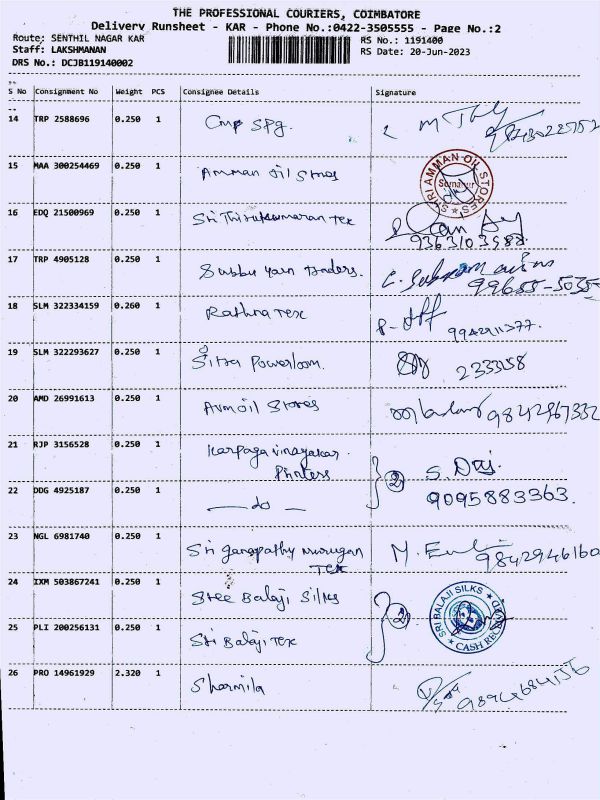 THE PROFESSIONAL COURIERS, COIMBATORE
Delivery Runsheet - KAR - Phone No.:0422-3505555 - Page No.:2
Route: SENTHIL NAGAR KAR RS No.: 1191400
Staff: LAKSHMANAN RS Date: 20-Jun-2023
DRS No.: DCJB119140002
S No Consignment No Weight PCS Consignee Details Signature
14 TRP 2588696 0.250 1 Cmp Spg.
15 MAA 300254469 0.250 1 Amman oil Stores SHRI AMMAN OIL STORES Somanur
16 EDQ 21500969 0.250 1 Sri Thirukumaran Tex 9363103588
17 TRP 4905128 0.250 1 Subbu yarn traders. C. Subramanian 99655-5035
18 SLM 322334159 0.260 1 Rathna Tex 9942911377.
19 SLM 322293627 0.250 1 Sitra Powerloom. 2333158
20 AMD 26991613 0.250 1 Avm oil Stores 9842967332
21 RJP 3156528 0.250 1 Karpaga vinayakar
Printers (2) S. Daj.
22 DDG 4925187 0.250 1 — do — 9095883363.
23 NGL 6981740 0.250 1 Sri ganapathy murugan
Tex M. 9842946160
24 IXM 503867241 0.250 1 Sree Balaji Silks (2) SRI BALAJI SILKS CASH RECD
25 PLI 200256131 0.250 1 Sri Balaji Tex
26 PRO 14961929 2.320 1 Sharmila 9894684156